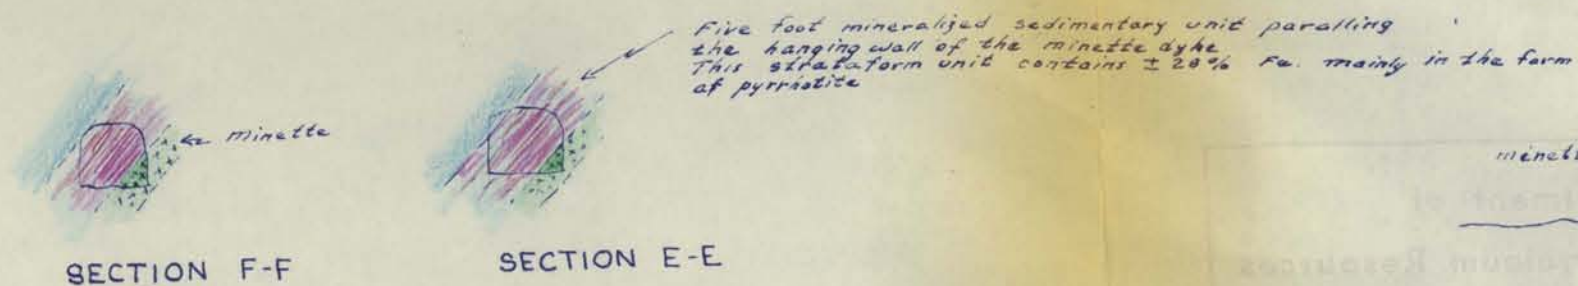 Five foot mineralized sedimentary unit paralling
the hanging wall of the minette dyke
This strataform unit contains ± 28% Fe. mainly in the form
of pyrrhotite
minette
minet
SECTION F-F
SECTION E-E